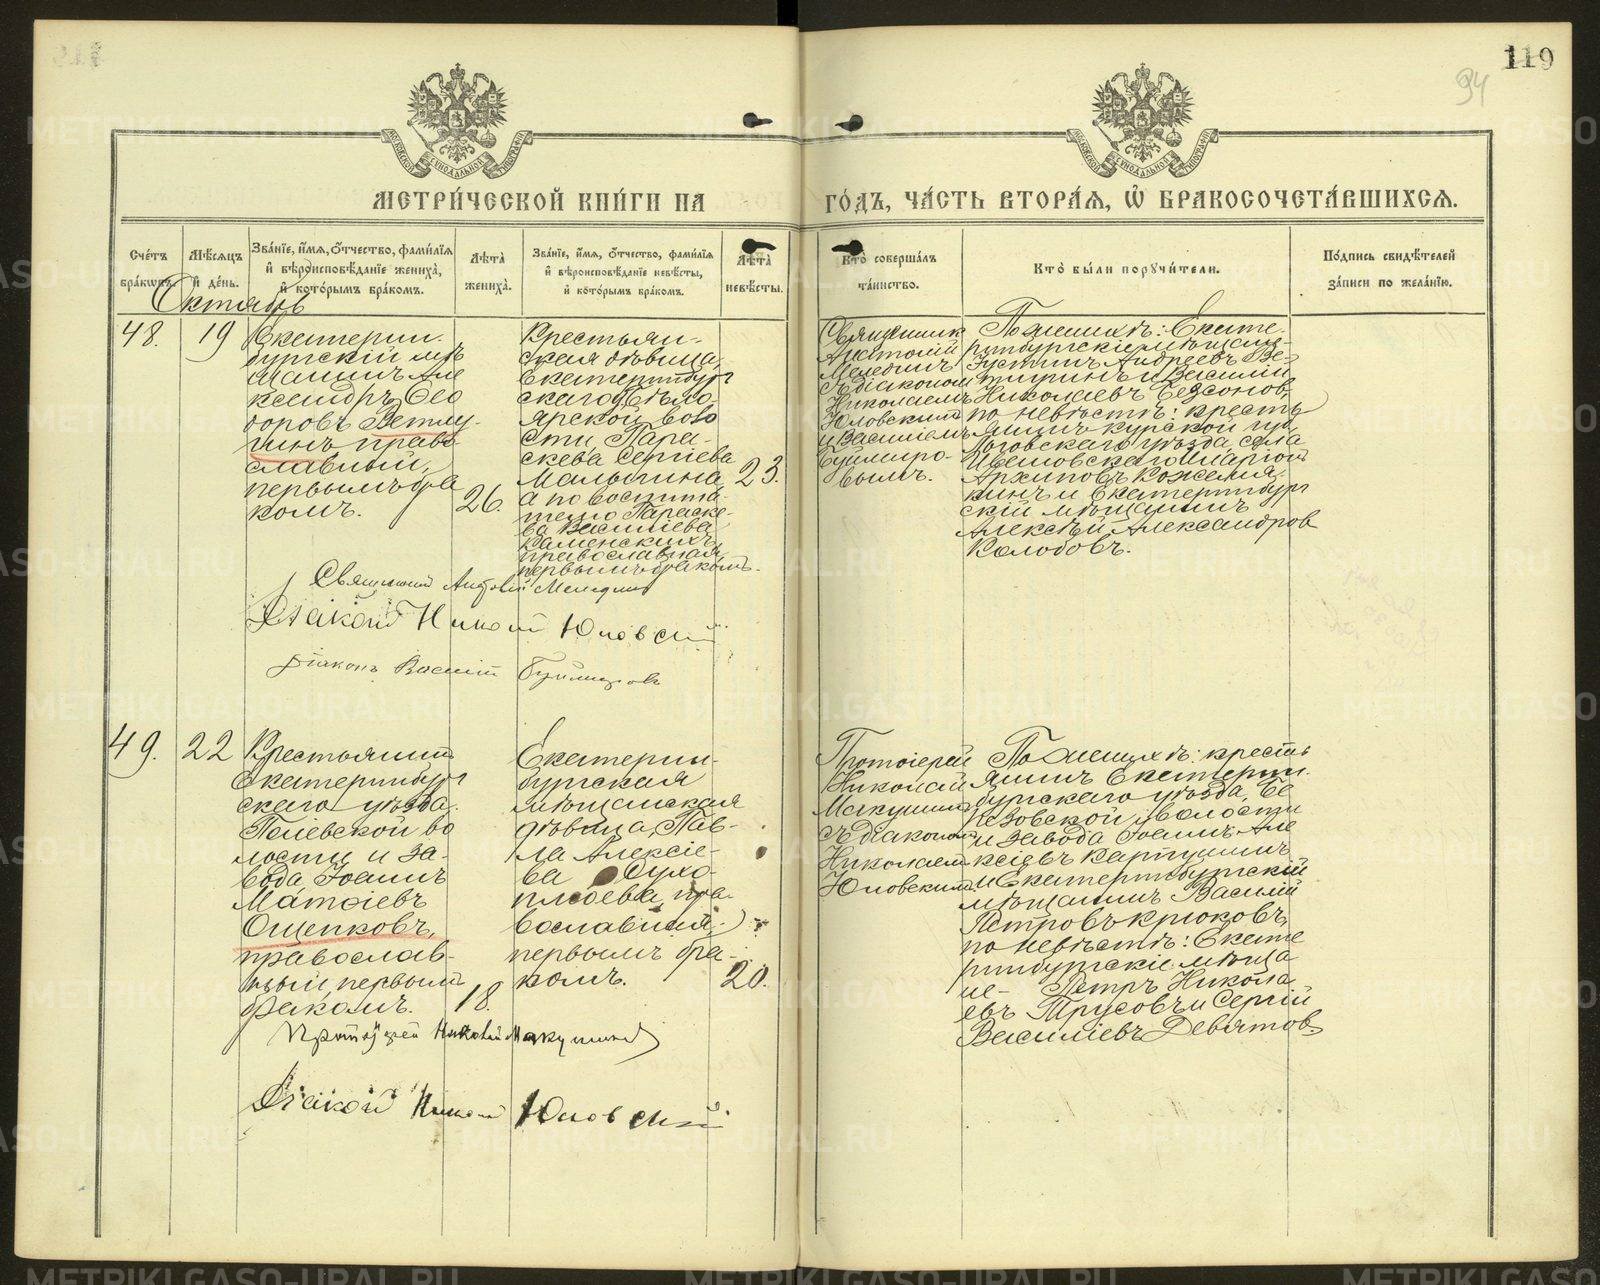 119
94
МЕТРИ́ЧЕСКОЙ КНИ́ГИ НА ГО́ДЪ, ЧА́СТЬ ВТОРА́Я, Ѡ҆ БРАКОСОЧЕТА́ВШИХСЯ.
Сче́тъ бра́кωвъ.
Мѣ́сяцъ и҆ де́нь.
Зва́нїе, и҆́мя, ѻ҆́тчество, фами́лїя и҆ вѣроисповѣ́данїе жениха̀, и҆ кото́рымъ бра́комъ.
Лѣ́та жениха̀.
Зва́нїе, и҆́мя, ѻ҆́тчество, фами́лїя и҆ вѣроисповѣ́данїе невѣ́сты, и҆ кото́рымъ бра́комъ.
Лѣ́та невѣ́сты.
Кто̀ соверша́лъ та́инство.
Кто̀ бы́ли порꙋчи́тели.
По́дпись свидѣ́телей за́писи по жела́нїю.
Октябрь
48.
19
Екатерин-
бургскій мѣ
щанинъ Але
ксандръ Ѳео
доровъ Ветлу-
гинъ, право
славный,
первымъ бра
комъ.
26.
Крестьян-
ская дѣвица,
Екатеринбург
скаго у. Бѣло-
ярской воло
сти, Пара-
скева Сергіева
Малыгина,
а по воспита-
телю Параске-
ва Василіева
Каменскихъ,
православная,
первымъ бракомъ.
23.
Священник
Анатолій
Меледин
съ діаконом
Николаемъ
Юловскимъ
и Василіемъ
Буймиро-
вымъ.
По женихѣ: Екате-
ринбургскіе мѣщане-
Іустинъ Андреевъ Ве-
тигинъ и Василій
Николаевъ Безсонов,
по невѣстѣ: кресть
янинъ Курской гу.,
Льговскаго уѣзда, села
Иларіонъ
Архиповъ Кожемя-
кинъ и Екатеринбург
скій мѣщанинъ
Алексѣй Александров
Колобовъ.
Священникъ Анатолій Меледин
Діаконъ Николай Юловскій
Діаконъ Василій Буймировъ
49.
22
Крестьянинъ
Екатеринбург
скаго уѣзда.
Полевской во
лости и за-
вода Іоаннъ
Матѳіевъ
Ощепковъ,
православ-
ный, первымъ
бракомъ.
18.
Екатерин-
бургская
мѣщанская
дѣвица, Пав-
ла Алексіе-
ва Сухо-
плюева, пра-
вославная,
первымъ бра-
комъ.
20.
Протоіерей
Николай
Макушинъ
съ діакономъ
Николаемъ
Юловскимъ
По женихѣ: кресть
янинъ Екатерин-
бургскаго уѣзда, Бе
резовской волости
и завода Іоаннъ Але
ксіевъ Картушинъ
и Екатеринбургскій
мѣщанинъ Василій
Петровъ Крюковъ,
по невѣстѣ: Екате
ринбургскіе мѣща
не- Петръ Никола
евъ Трусовъ и Сергій
Василіевъ Девятов.
Протоіерей Николай Макушинъ
Діаконъ Николай Юловскій
METRIKI.GASO-URAL.RU